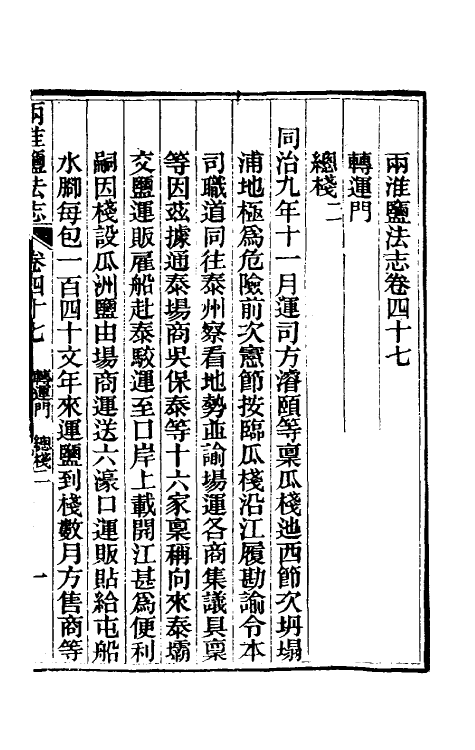 兩淮鹽法志卷四十七
轉運門
總棧二
同治九年十一月運司方濬頤等稟瓜棧迤西節次坍塌
浦地極爲危險前次憲節按臨瓜棧沿江履勘諭令本
司職道同往泰州察看地勢並諭場運各商集議具稟
等因茲據通泰場商吳保泰等十六家稟稱向來泰壩
交鹽運販雇船赴泰駮運至口岸上載開江甚爲便利
嗣因棧設瓜洲鹽由場商運送六濠口運販貼給屯船
水腳每包一百四十文年來運鹽到棧數月方售商等
兩淮鹽法志 卷四十七 轉運門 總棧二 一